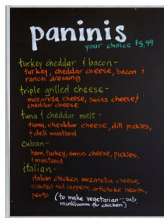 paninis
your choice $5.99
turkey cheddar & bacon -
turkey, cheddar cheese, bacon &
ranch dressing
triple grilled cheese -
mozarella cheese, swiss cheese,
cheddar cheese
tuna & cheddar melt -
tuna, cheddar cheese, dill pickles,
& deli mustard
cuban -
ham, turkey, swiss cheese, pickles,
& mustard
italian -
italian chicken mozarella cheese,
roasted red peppers, artichoke hearts,
pesto
(to make vegetarian - sub
mushrooms for chicken)